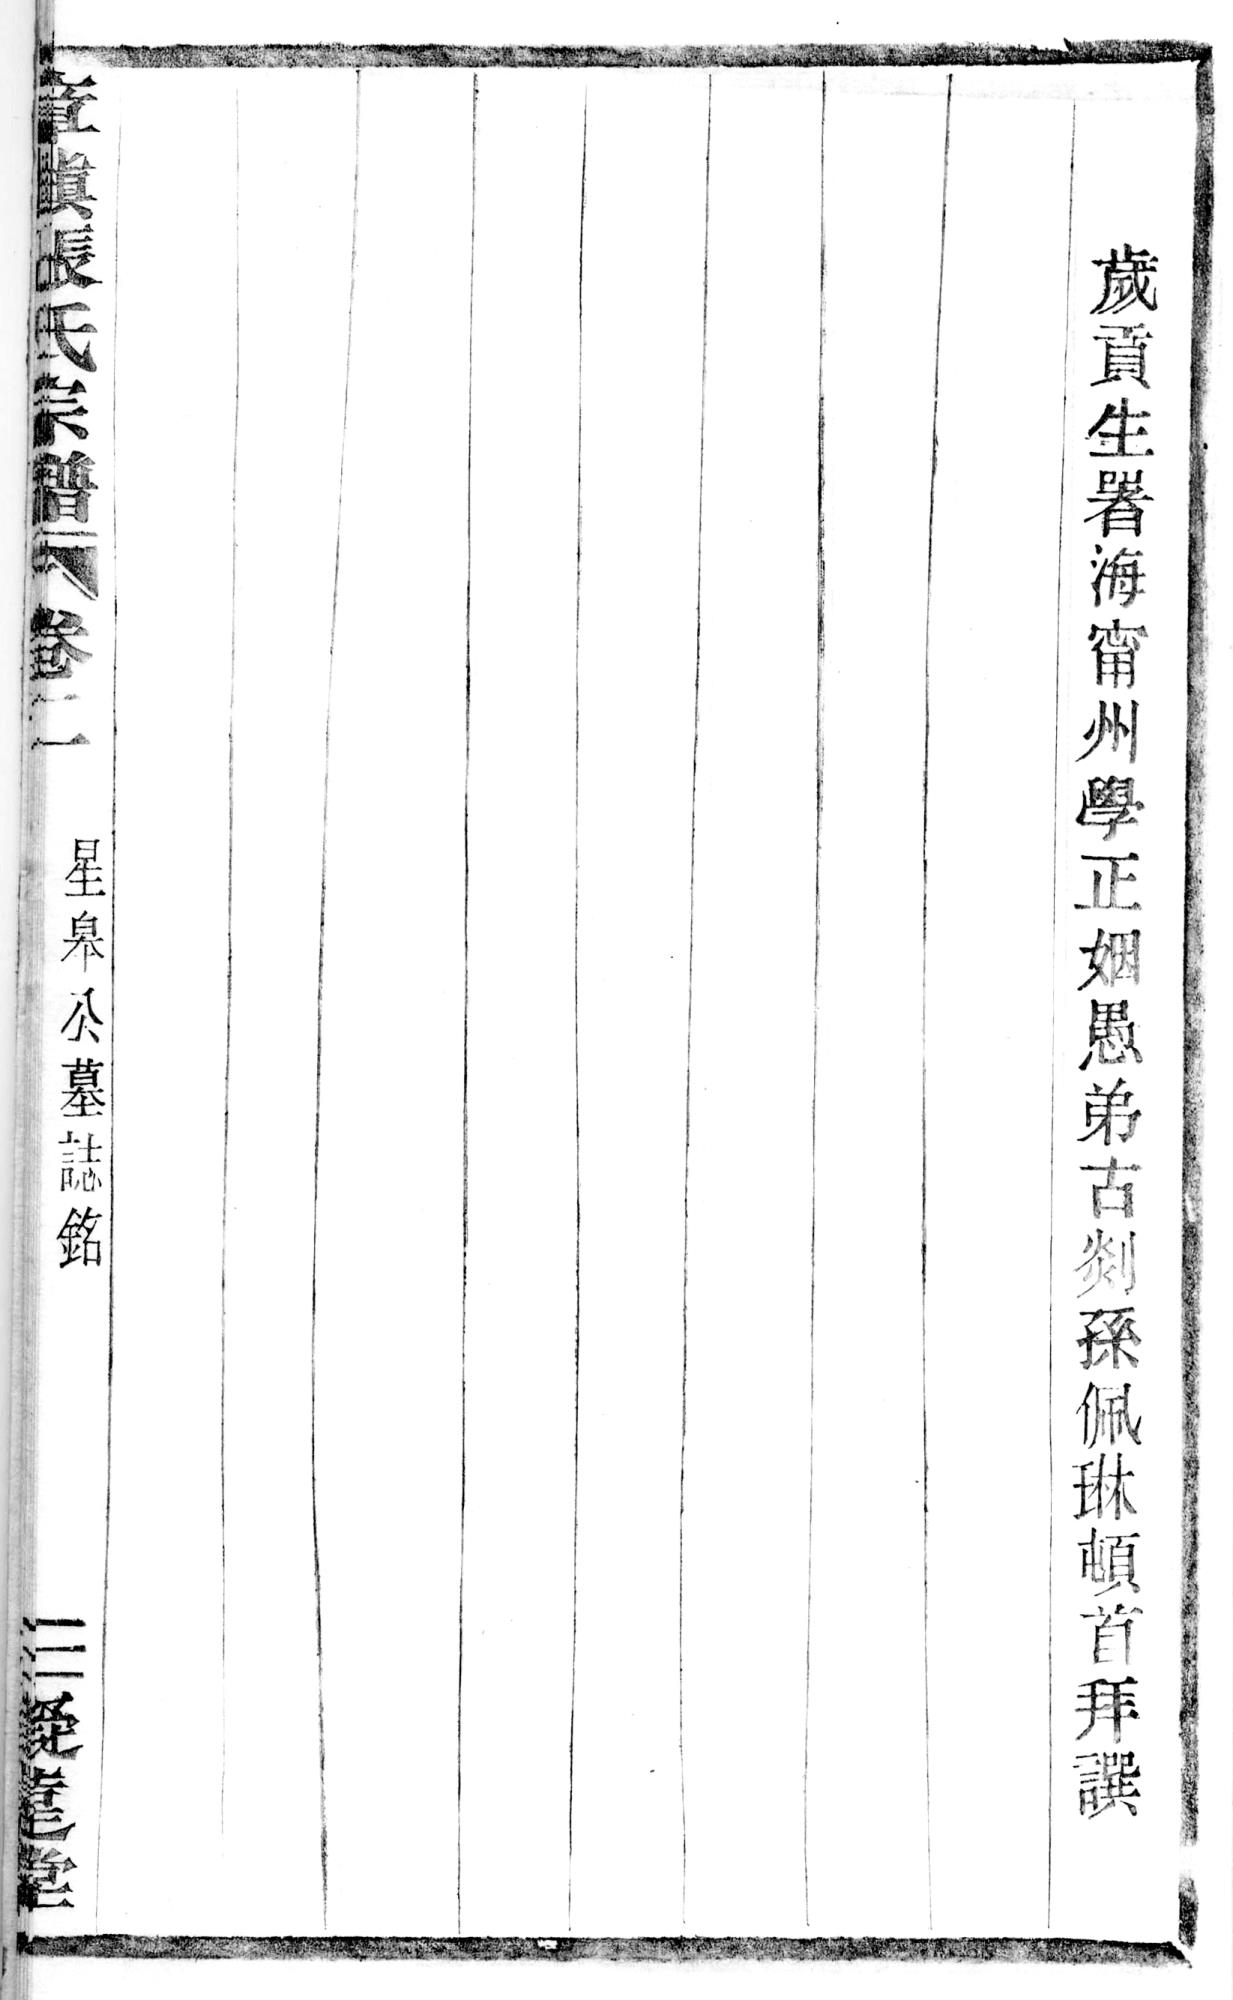 歲貢生署海甯州學正姻愚弟古剡孫佩琳頓首拜譔
章鎮張氏宗譜 卷二
星皋公墓誌銘
三 堂